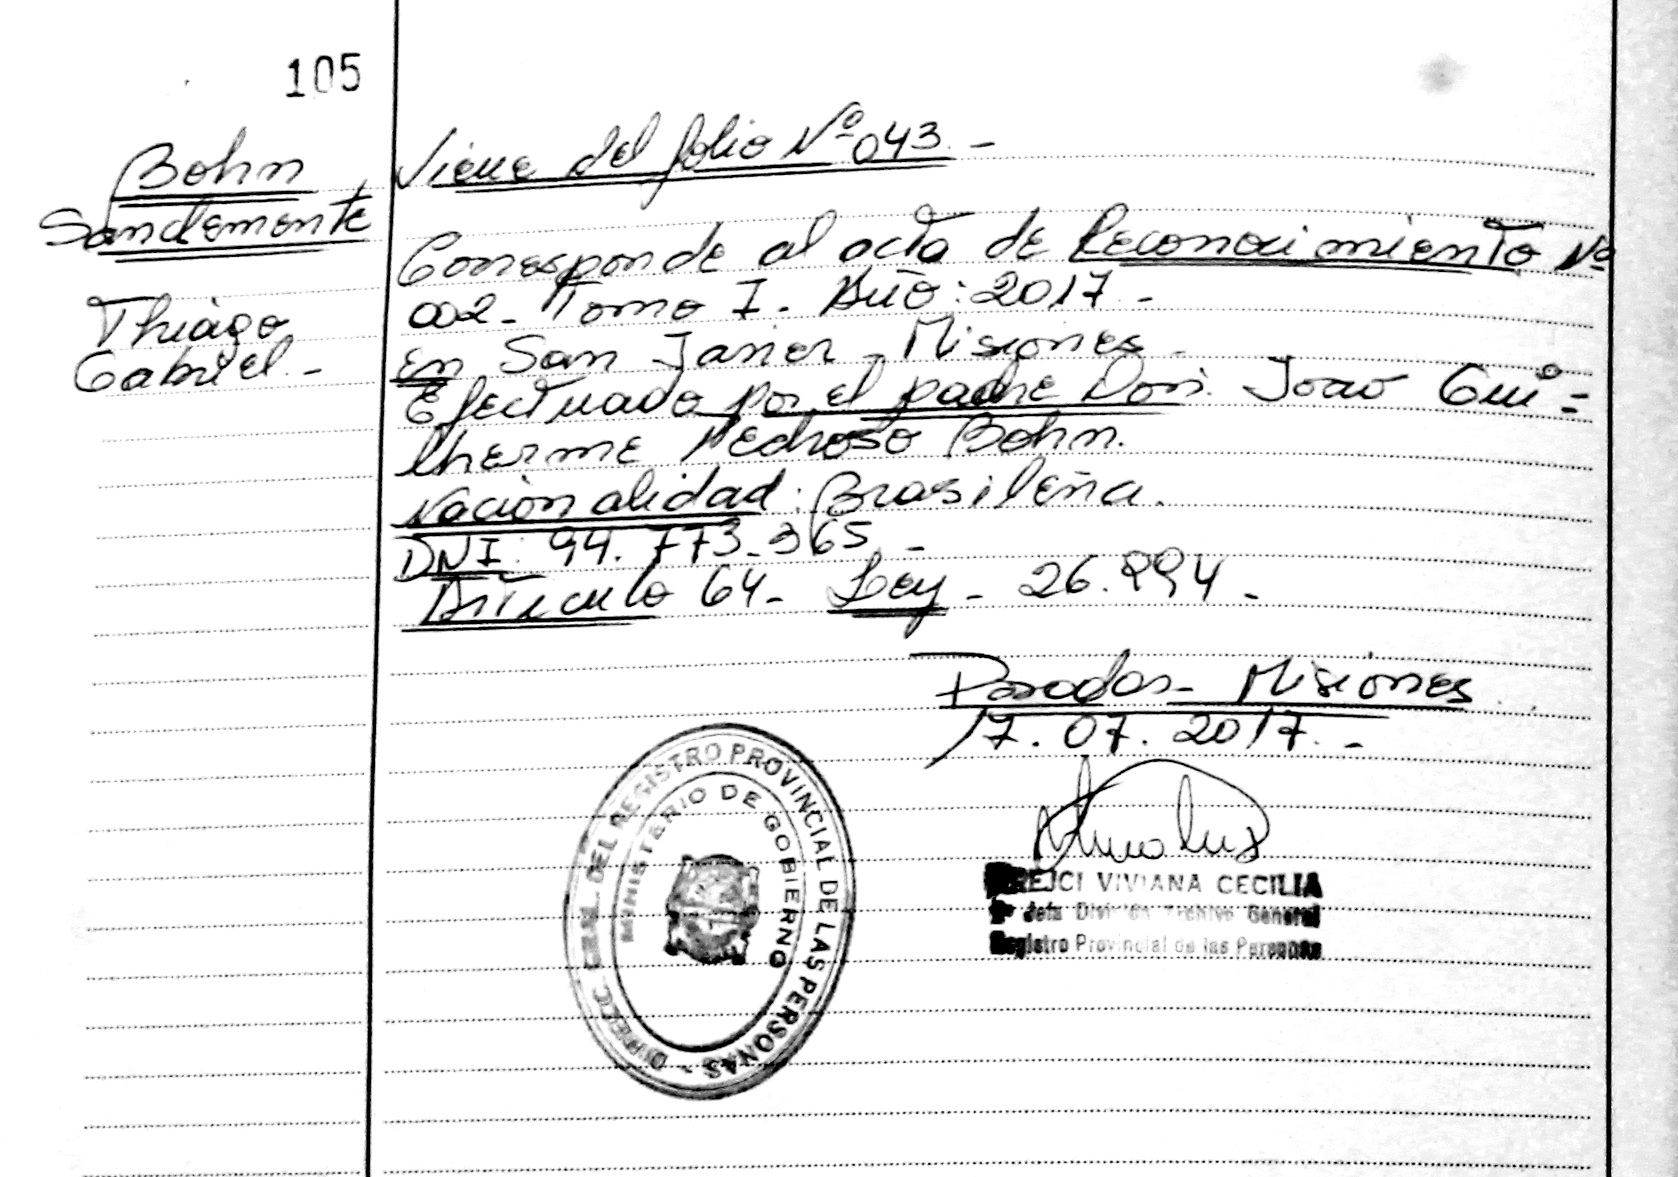 105
Bohn
Sanclemente
Thiago
Gabriel -
Viene del folio Nº 043 -
Corresponde al acta de Reconocimiento Nº
002 - Tomo I. Año: 2017 -
En San Javier - Misiones -
Efectuado por el padre Don: Joao Gui =
lherme Pedroso Bohn.
Nacionalidad: Brasileña.
DNI: 94.773.965 -
Artículo 64 - Ley - 26.994 -
Posadas - Misiones
17.07.2017. -
DIRECC. GRAL. DEL REGISTRO PROVINCIAL DE LAS PERSONAS -
MINISTERIO DE GOBIERNO
VIVIANA CECILIA
Jefa División Archivo General
Registro Provincial de las Personas